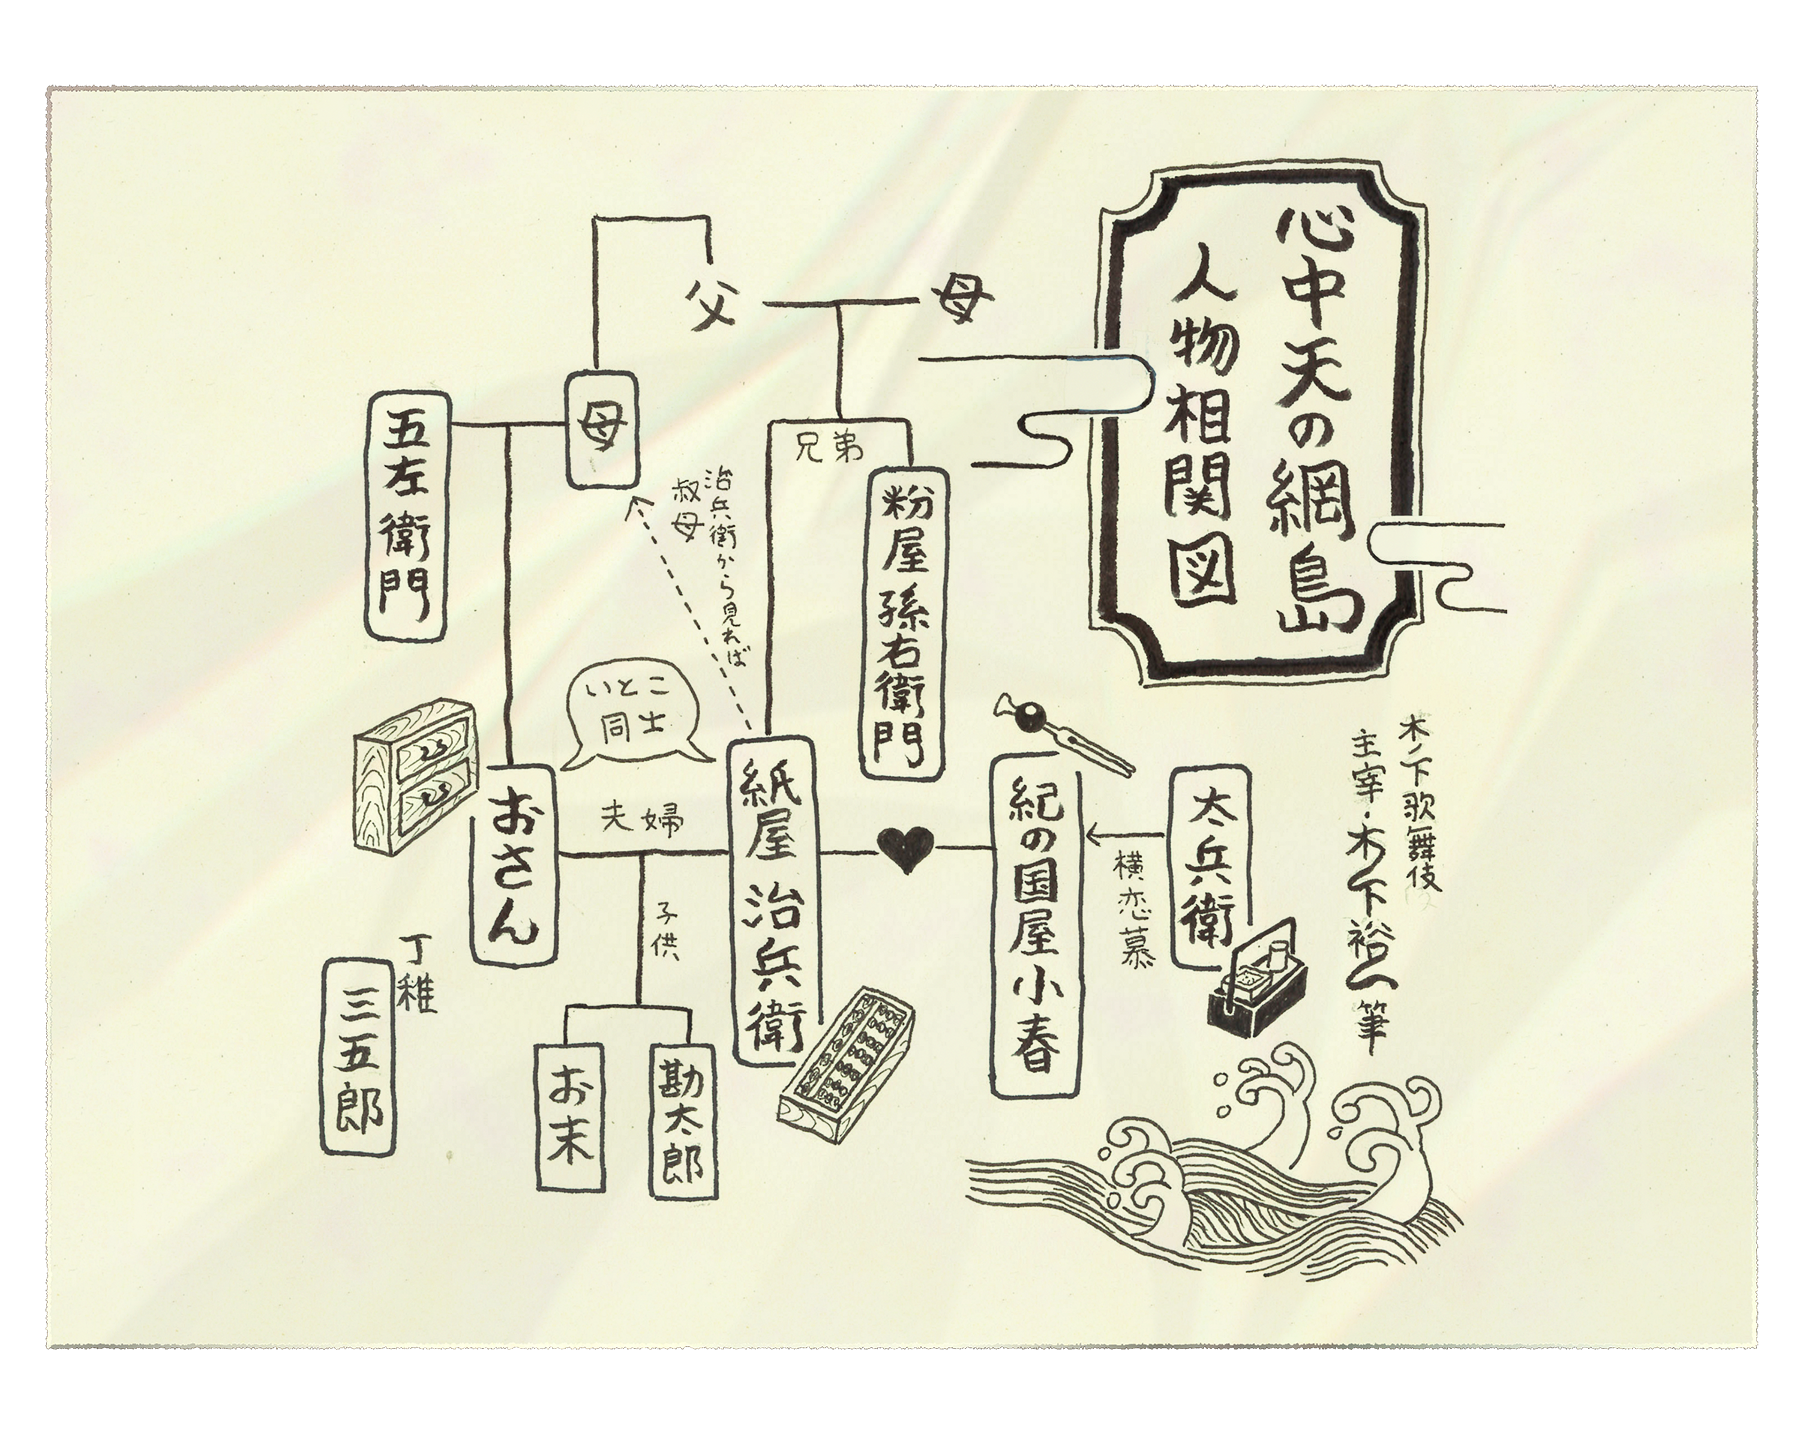 心中天の網島
人物相関図
木ノ下歌舞伎
主宰・木ノ下裕一 筆
母
父
兄弟
粉屋 孫右衛門
母
五左衛門
治兵衛から見れば
叔母
いとこ
同士
太兵衛
横恋慕
紀の国屋 小春
紙屋 治兵衛
夫婦
おさん
子供
勘太郎
お末
丁稚
三五郎